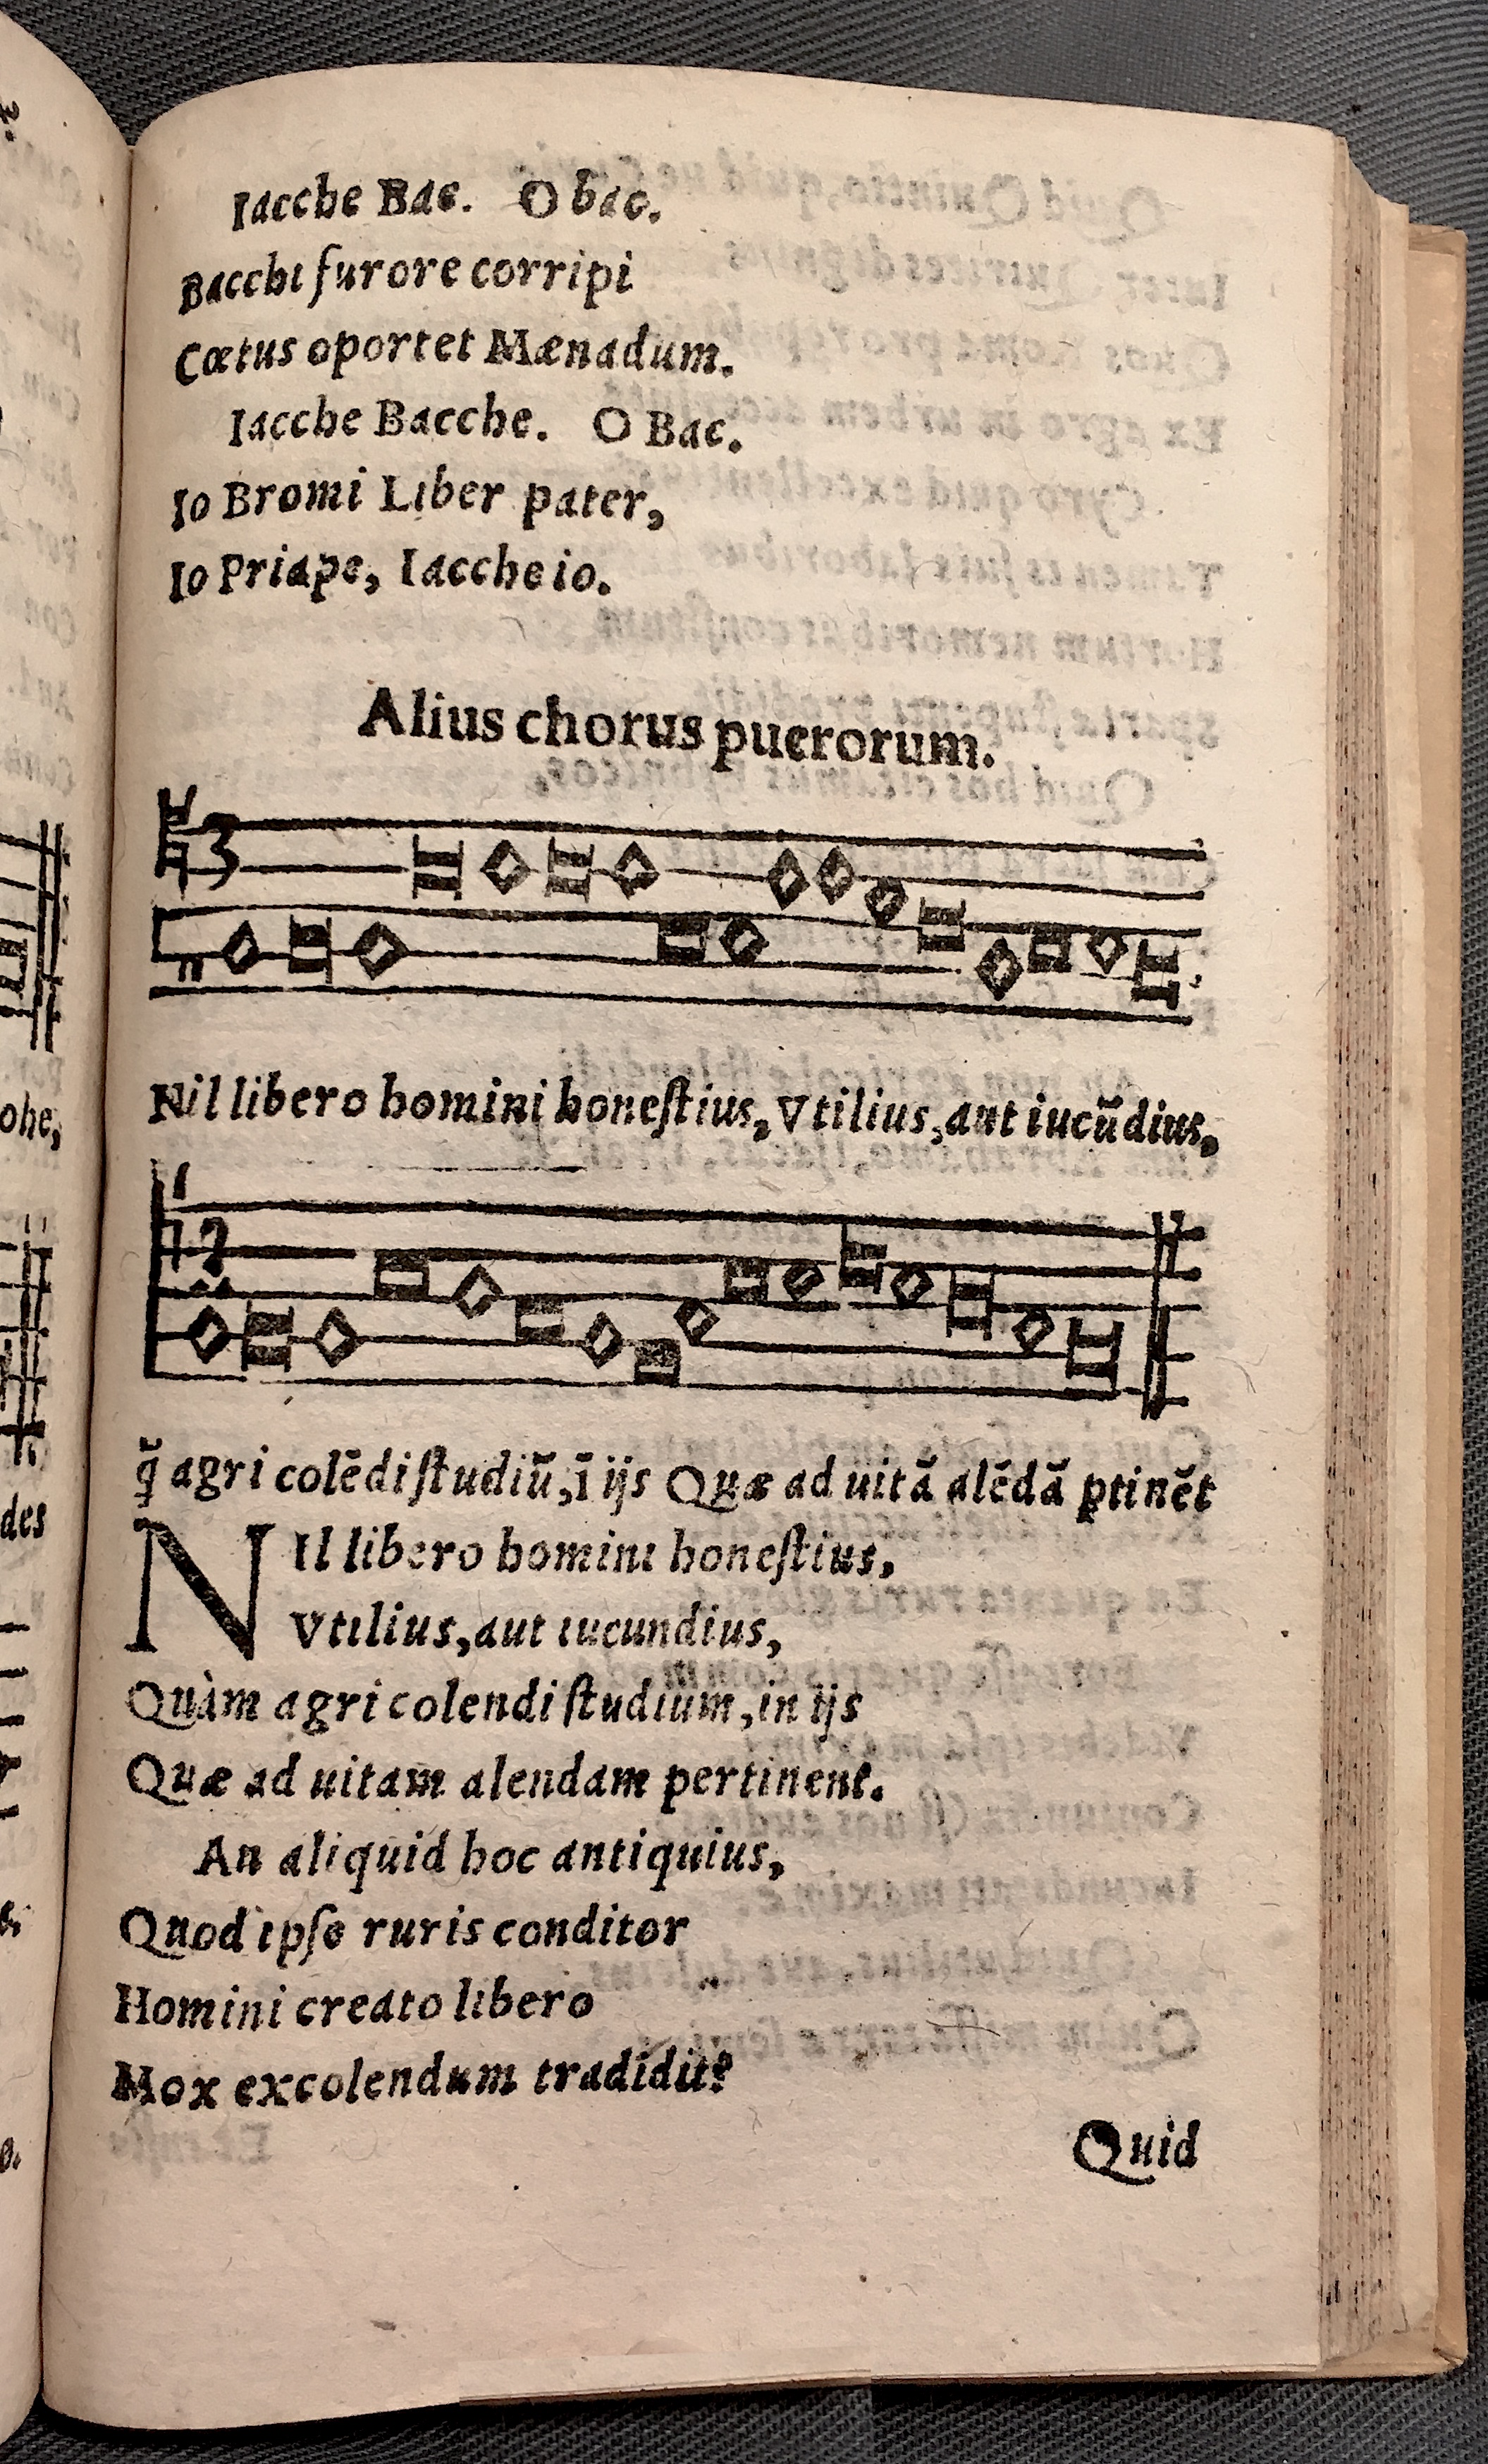 Iacche Bac. O bac.
Bacchi furore corripi
Cœtus oportet Mænadum.
Iacche Bacche. O Bac.
Io Bromi Liber pater,
Io Priape, Iacche io.
Alius chorus puerorum.
3
Nil libero homini honeſtius, Vtilius, aut iucūdius,
ohe,
q̃ agri colēdi ſtudiũ, ī ijs Quæ ad uitā alēdā ꝑtinēt
des
NIl libero homini honeſtius,
Vtilius, aut iucundius,
Quàm agri colendi ſtudium, in ijs
Quæ ad uitam alendam pertinent.
An aliquid hoc antiquius,
Quod ipſe ruris conditor
Homini creato libero
Mox excolendum tradidit?
Quid